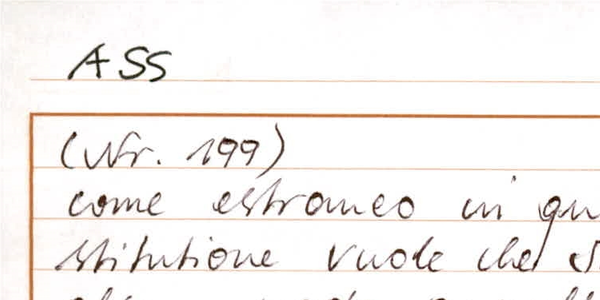 ASS
(Nr. 199)
come estraneo in qu
stitutione vuole che